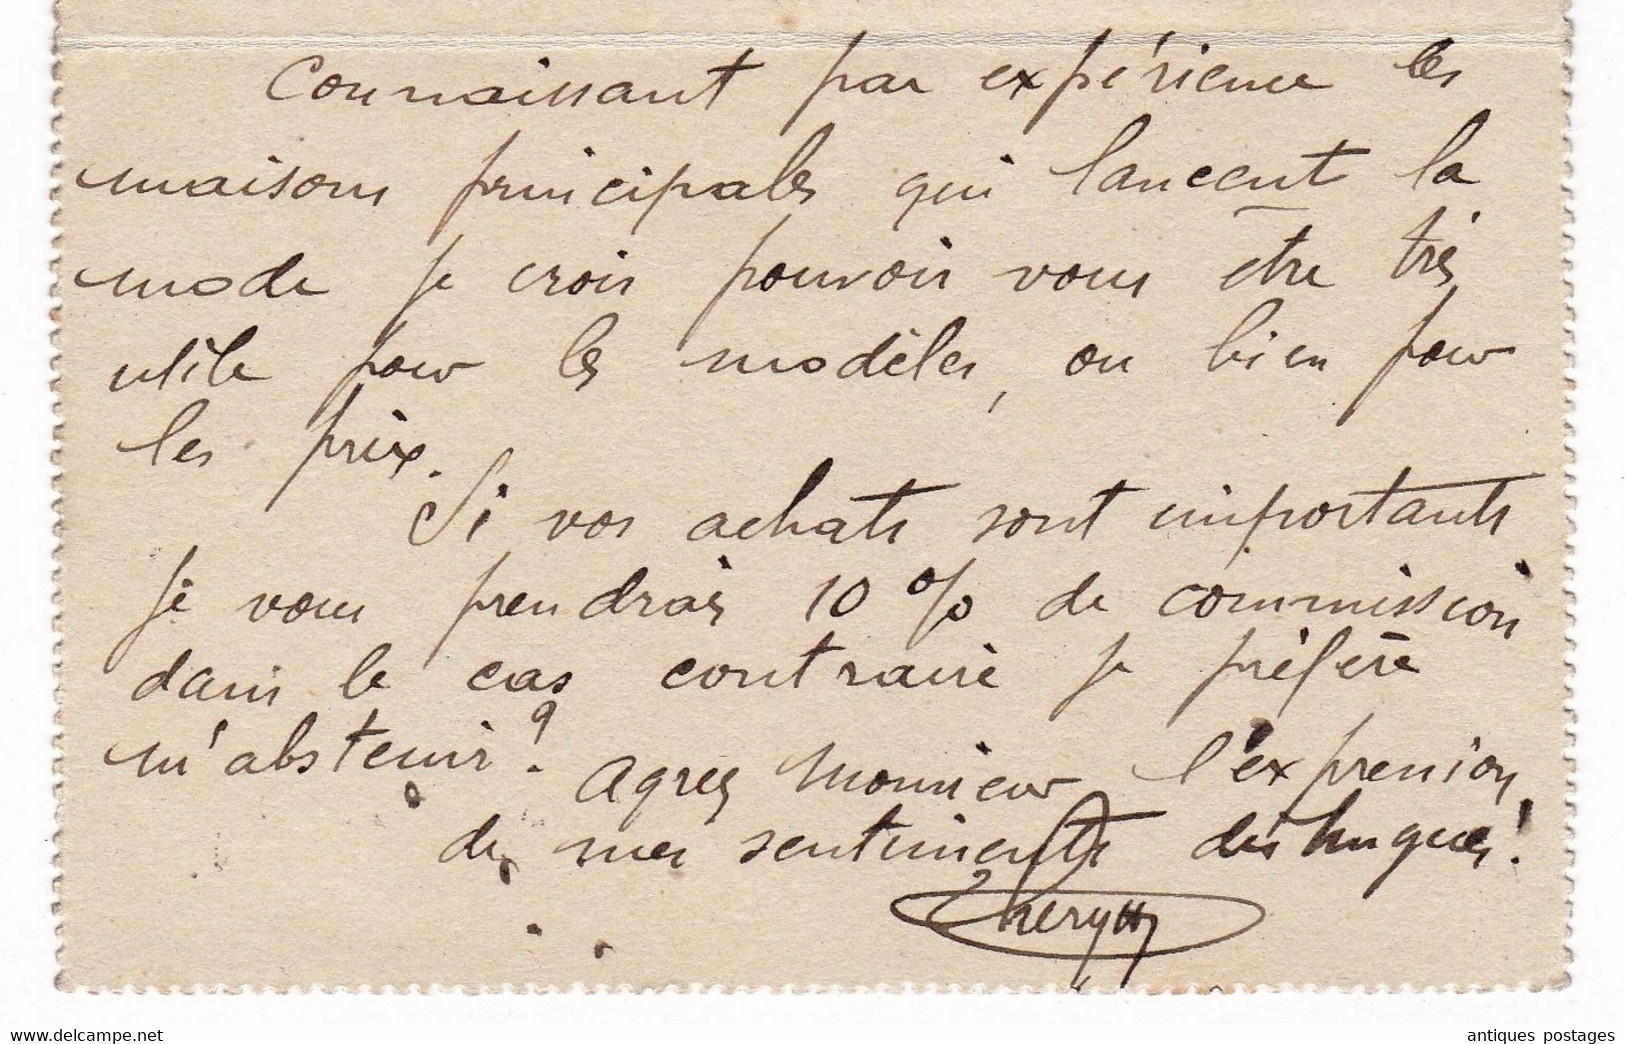 Connaissant par expérience les
maisons principales qui lancent la
mode je crois pouvoir vous être très
utile pour les modèles, ou bien pour
les prix.
Si vos achats sont importants
je vous prendrais 10 % de commission
dans le cas contraire je préfère
m'abstenir!
Agréez Monsieur l'expression
de mes sentiments distingués!
www.delcampe.net
antiques postages